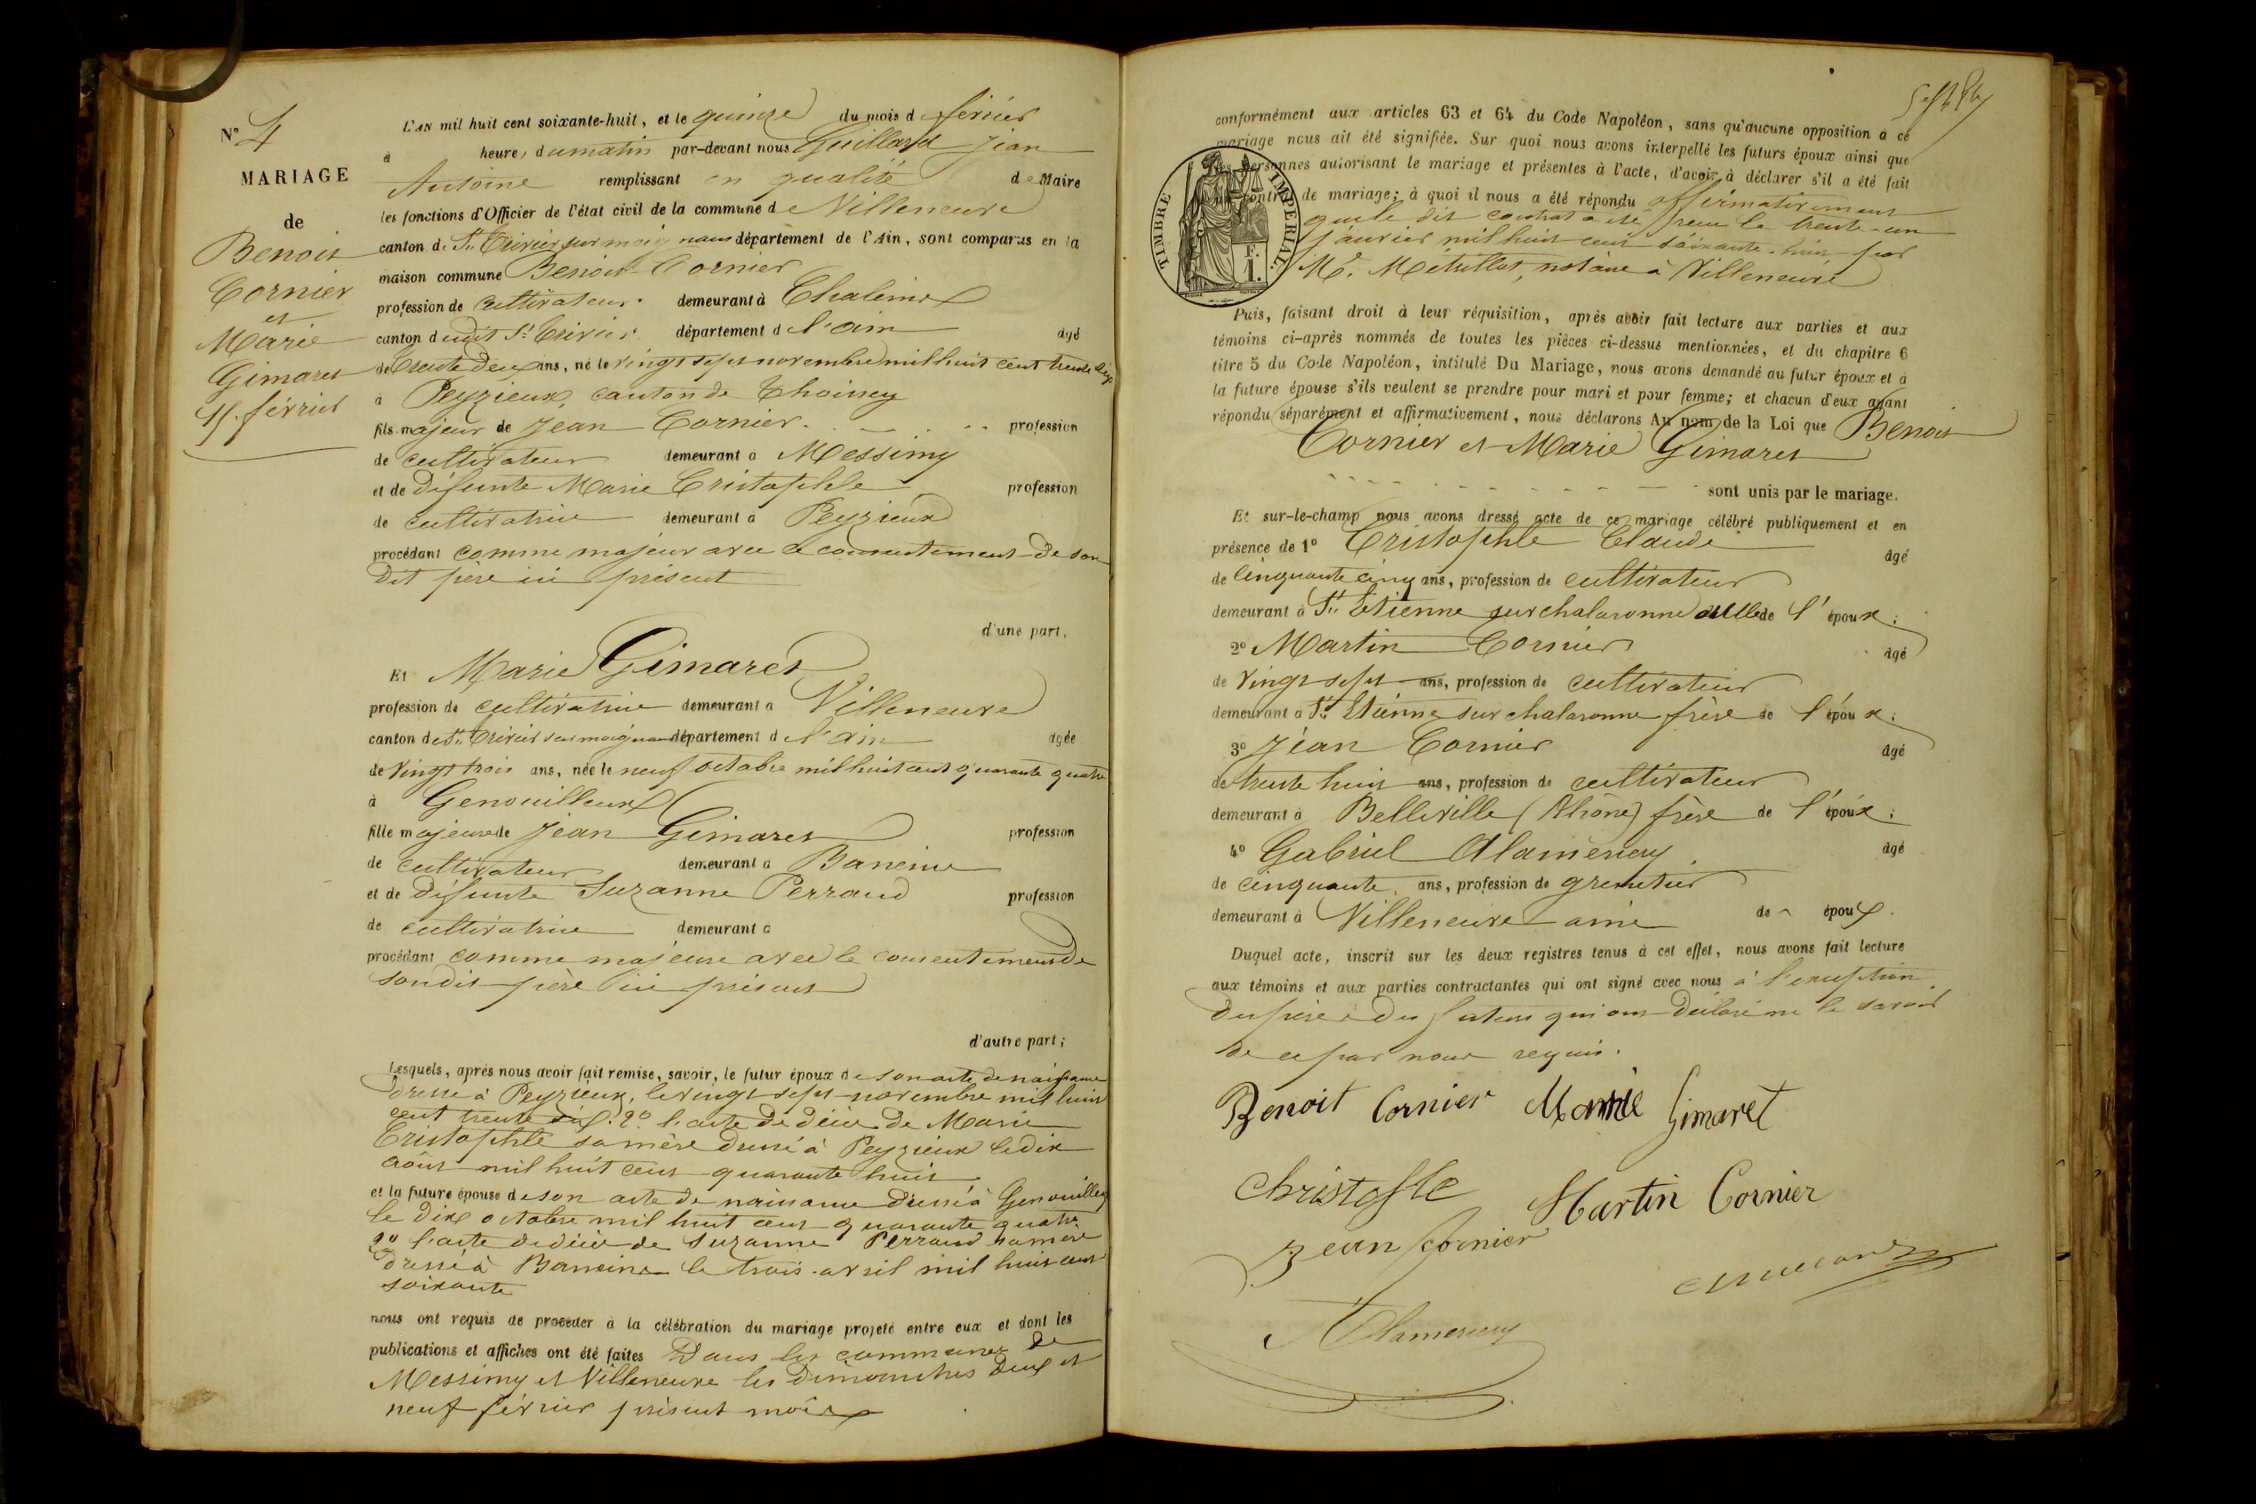 N° 4
MARIAGE
de
Benoit
Cornier
et
Marie
Gimaret
15. février
L'AN mil huit cent soixante-huit, et le quinze du mois de février
à heure, du matin par-devant nous Guillard Jean
Antoine remplissant en qualité de Maire
les fonctions d'Officier de l'état civil de la commune de Villeneuve
canton de St. Trivier sur moignans département de l'Ain, sont comparus en la
maison commune Benoit Cornier
profession de cultivateur demeurant à Chaleins
canton dudit St. Trivier département de l'ain âgé
de trente deux ans, né le vingt sept novembre mil huit cent trente
à Peyzieux, canton de Thoissey
fils majeur de Jean Cornier profession
de cultivateur demeurant à Messimy
et de défunte Marie Cristophle profession
de cultivatrice demeurant à Peyzieux
procédant comme majeur avec le consentement de son
dit père ici présent
d'une part,
Et Marie Gimaret
profession de cultivatrice demeurant à Villeneuve
canton de St. Trivier sur moignans département de l'ain âgée
de vingt trois ans, née le neuf octobre mil huit cent quarante quatre
à Genouilleux
fille majeure de Jean Gimaret profession
de cultivateur demeurant à Baneins
et de défunte Suzanne Perraud profession
de cultivatrice demeurant à
procédant comme majeure avec le consentement de
son dit père ici présent
d'autre part;
Lesquels, après nous avoir fait remise, savoir, le futur époux de son acte de naissance
dressé à Peyzieux, le vingt sept novembre mil huit
cent trente 2° l'acte de décès de Marie
Cristophle sa mère dressé à Peyzieux le dix
août mil huit cent quarante huit
et la future épouse de son acte de naissance dressé à Genouilleux
le dix octobre mil huit cent quarante quatre
2° l'acte de décès de Suzanne Perraud sa mère
dressé à Baneins le trois avril mil huit cent
soixante
nous ont requis de procéder à la célébration du mariage projeté entre eux et dont les
publications et affiches ont été faites Dans les communes de
Messimy et Villeneuve les dimanches deux et
neuf février présent mois
conformément aux articles 63 et 64 du Code Napoléon, sans qu'aucune opposition à ce
mariage nous ait été signifiée. Sur quoi nous avons interpellé les futurs époux ainsi que
les personnes autorisant le mariage et présentes à l'acte, d'avoir à déclarer s'il a été fait
un contrat de mariage; à quoi il nous a été répondu affirmativement
que le dit contrat a été reçu le trente-un
janvier mil huit cent soixante-huit par
Me. notaire à Villeneuve
TIMBRE IMPERIAL.
F.
1.
Puis, faisant droit à leur réquisition, après avoir fait lecture aux parties et aux
témoins ci-après nommés de toutes les pièces ci-dessus mentionnées, et du chapitre 6
titre 5 du Code Napoléon, intitulé Du Mariage, nous avons demandé au futur époux et à
la future épouse s'ils veulent se prendre pour mari et pour femme; et chacun d'eux ayant
répondu séparément et affirmativement, nous déclarons Au nom de la Loi que Benoit
Cornier et Marie Gimaret
sont unis par le mariage.
Et sur-le-champ nous avons dressé acte de ce mariage célébré publiquement et en
présence de 1° Cristophle Claude âgé
de cinquante cinq ans, profession de cultivateur
demeurant à St. Etienne sur chalaronne de l'époux;
2° Martin Cornier âgé
de vingt sept ans, profession de cultivateur
demeurant à St. Etienne sur chalaronne frère de l'époux;
3° Jean Cornier âgé
de trente huit ans, profession de cultivateur
demeurant à Belleville (Rhône) frère de l'époux;
4° Gabriel Alamercery âgé
de cinquante ans, profession de grenetier
demeurant à Villeneuve ami de époux.
Duquel acte, inscrit sur les deux registres tenus à cet effet, nous avons fait lecture
aux témoins et aux parties contractantes qui ont signé avec nous à l'exception
du père des futurs qui ont déclaré ne le savoir
de ce par nous requis.
Benoit Cornier Marie Gimaret
Christofle Martin Cornier
Jean Cornier
Alamercery